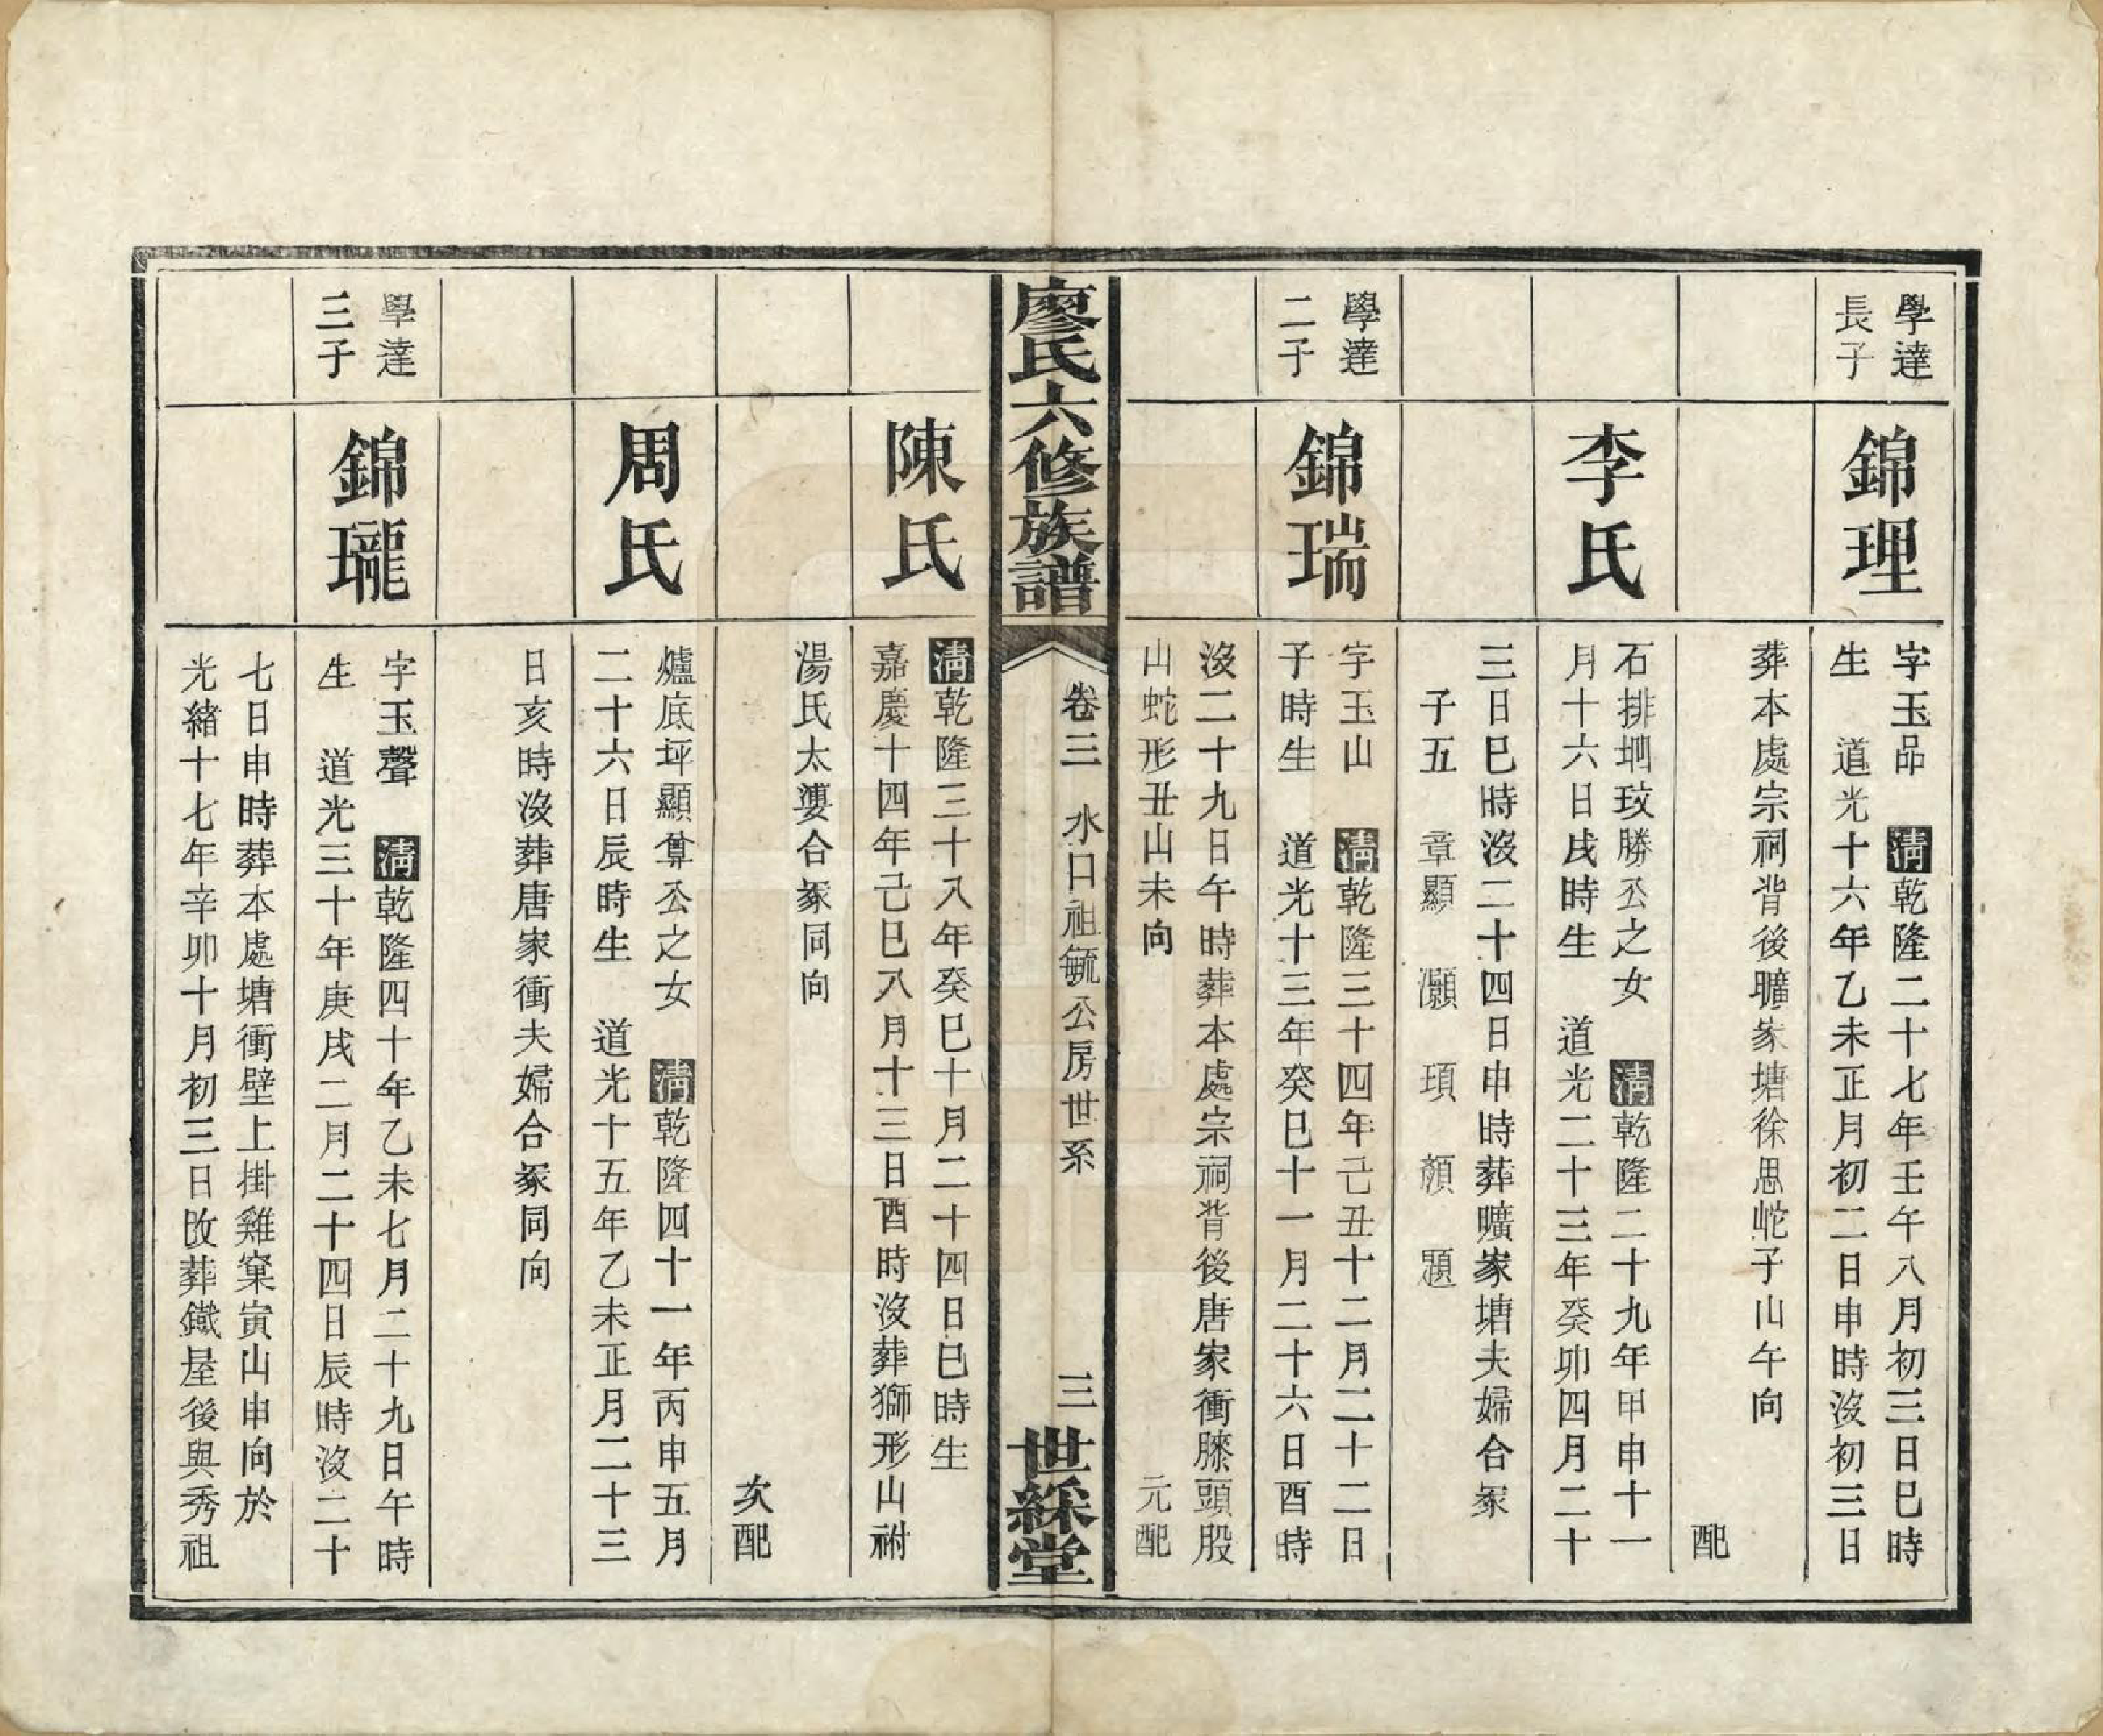 學達
長子
錦理
字玉品　清乾隆二十七年壬午八月初三日巳時
生　道光十六年乙未正月初二日申時沒初三日
葬本處宗祠背後曠家塘徐思蛇子山午向
配
李氏
石排圳玟勝公之女　清乾隆二十九年甲申十一
月十六日戌時生　道光二十三年癸卯四月二十
三日巳時沒二十四日申時葬曠家塘夫婦合冢
子五　章顯　灝　頊　顏　題
學達
二子
錦瑞
字玉山　清乾隆三十四年己丑十二月二十二日
子時生　道光十三年癸巳十一月二十六日酉時
沒二十九日午時葬本處宗祠背後唐家衝滕頭股
山蛇形丑山未向　元配
廖氏六修族譜
卷三　水口祖毓公房世系
三
世綵堂
陳氏
清乾隆三十八年癸巳十月二十四日巳時生
嘉慶十四年己巳八月十三日酉時沒葬獅形山祔
湯氏太孆合冢同向
次配
周氏
爐底坪顯尊公之女　清乾隆四十一年丙申五月
二十六日辰時生　道光十五年乙未正月二十三
日亥時沒葬唐家衝夫婦合冢同向
學達
三子
錦瓏
字玉聲　清乾隆四十年乙未七月二十九日午時
生　道光三十年庚戌二月二十四日辰時沒二十
七日申時葬本處塘衝壁上掛雞窠寅山申向於
光緒十七年辛卯十月初三日改葬鐵屋後與秀祖